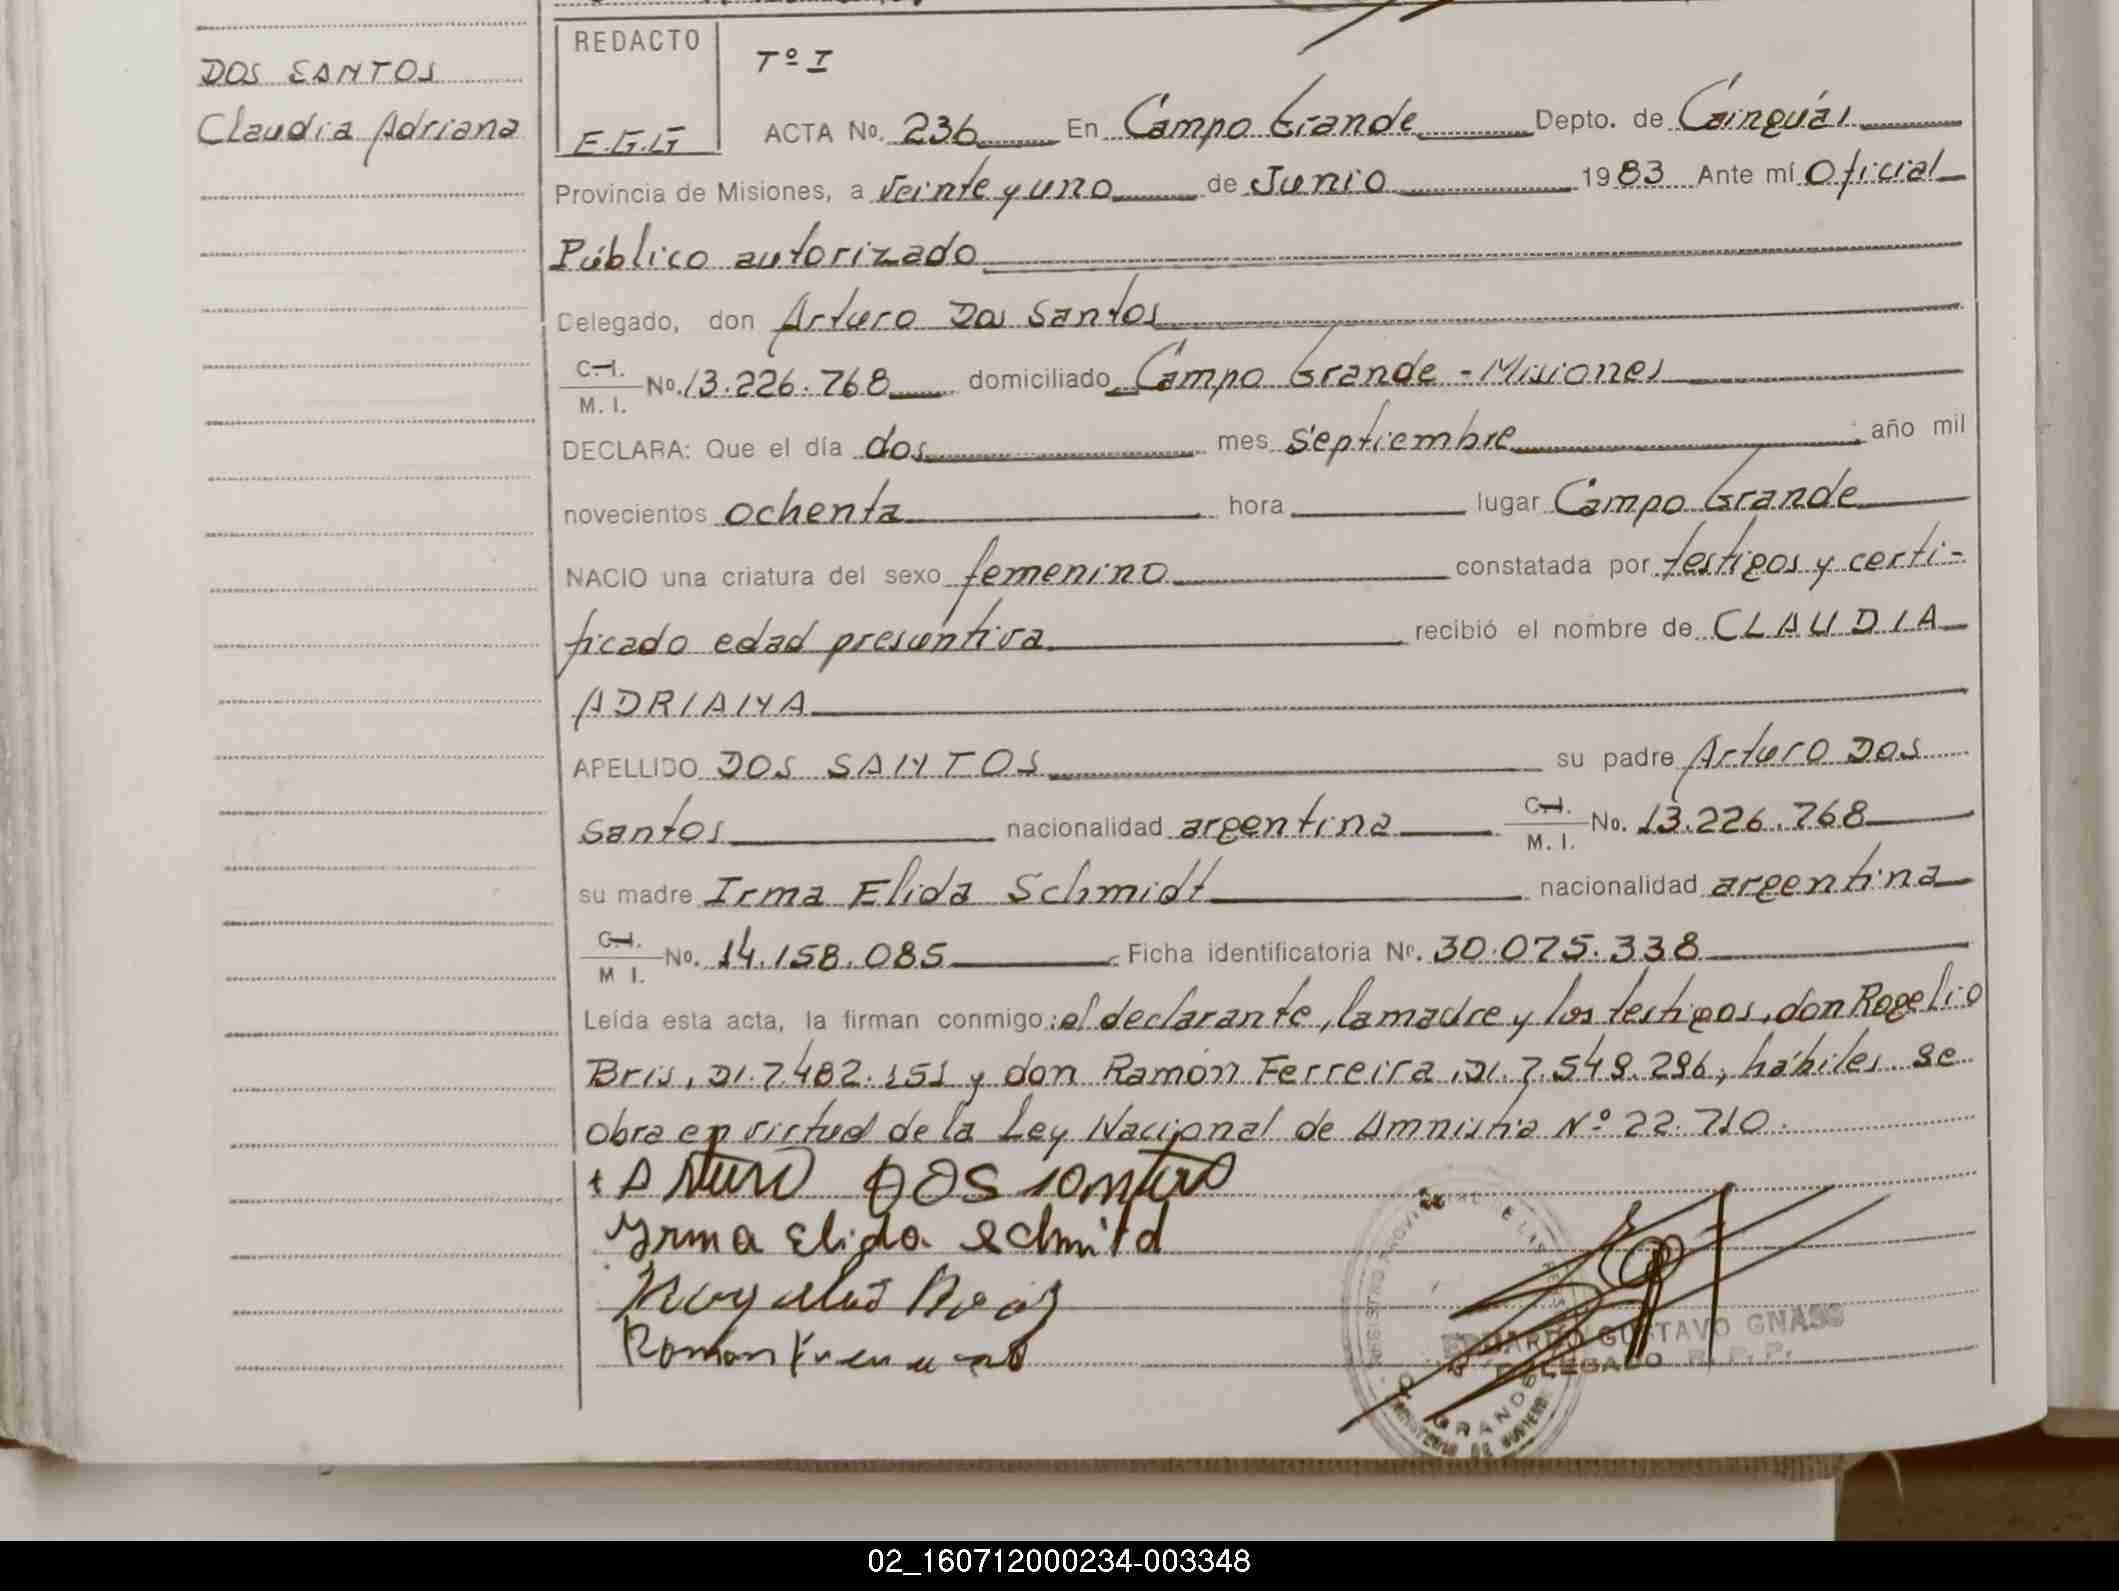 DOS SANTOS
Claudia Adriana
REDACTO
E.G.G
Tº I
ACTA No. 236 En Campo Grande Depto. de Cainguás
Provincia de Misiones, a veinte y uno de Junio 1983 Ante mí Oficial
Público autorizado
Delegado, don Arturo Dos Santos
C.I. M. I. No. 13.226.768 domiciliado Campo Grande - Misiones
DECLARA: Que el día dos mes septiembre año mil
novecientos ochenta hora lugar Campo Grande
NACIO una criatura del sexo femenino constatada por testigos y certi-
ficado edad presuntiva recibió el nombre de CLAUDIA
ADRIANA
APELLIDO DOS SANTOS su padre Arturo Dos
Santos nacionalidad argentina C.I. M. I. No. 13.226.768
su madre Irma Elida Schmidt nacionalidad argentina
C.I. M I. No. 14.158.085 Ficha identificatoria Nº. 30.075.338
Leída esta acta, la firman conmigo: el declarante, la madre y los testigos, don Rogelio
Bris, DI. 7.482.151 y don Ramón Ferreira, DI. 7.549.296, hábiles. Se
obra en virtud de la Ley Nacional de Amnistía Nº 22.710.
Arturo DOS santos
Irma Elida Schmitd
Ramon
EDUARDO GUSTAVO GNASS
DELEGADO R. P. P.
GRANDE
02_160712000234-003348